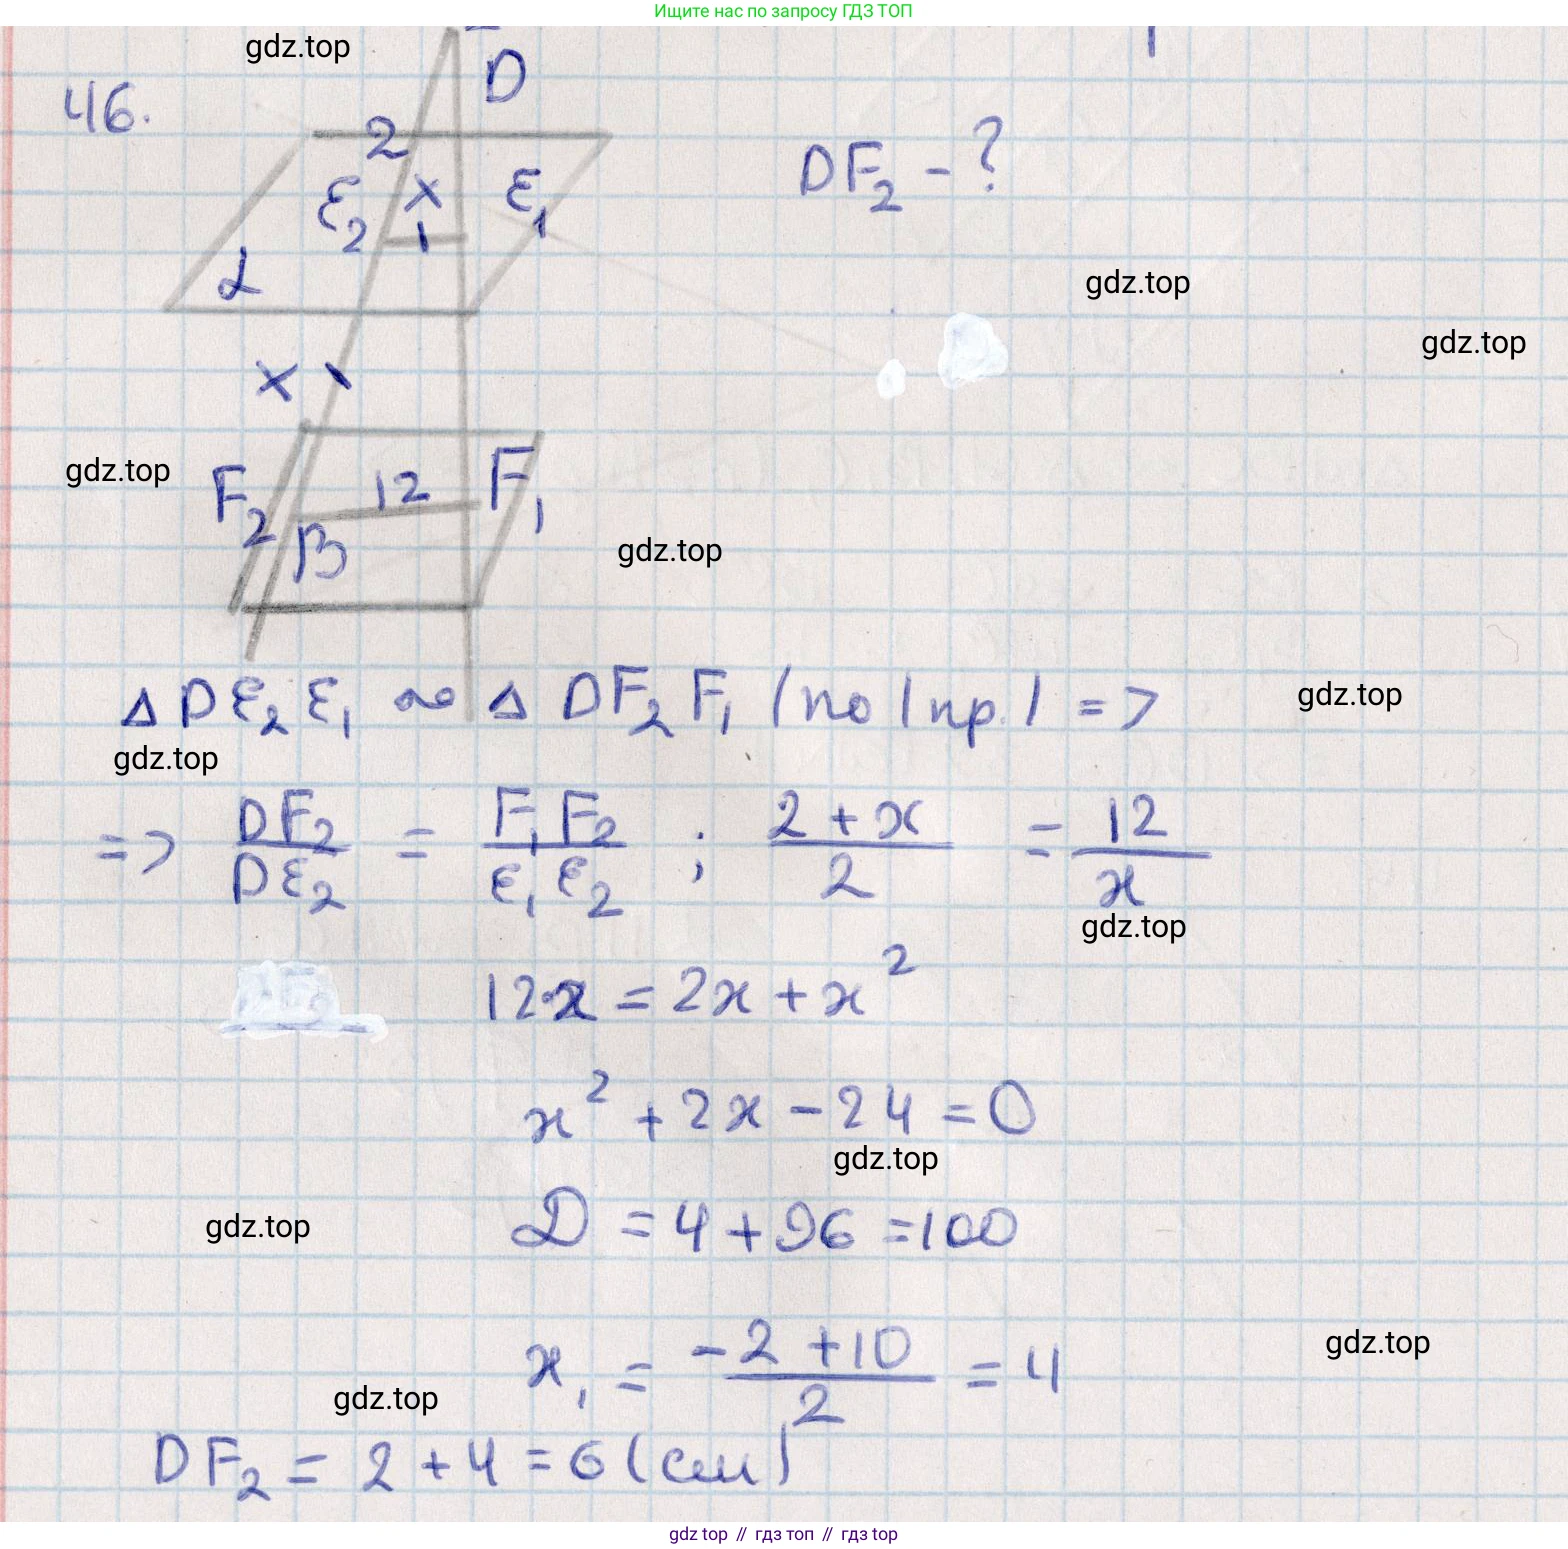 Ищите нас по запросу ГДЗ ТОП
gdz.top
46.
D
2
DF₂ - ?
ε₂ x ε₁
1
α
gdz.top
gdz.top
x
gdz.top
F₂ 12 F₁
β
gdz.top
Δ Dε₂ε₁ ∾ Δ DF₂F₁ (по I пр.) =>
gdz.top
gdz.top
=> DF₂/Dε₂ = F₁F₂/ε₁ε₂ ; (2 + x)/2 = 12/x
gdz.top
12·x = 2x + x²
x² + 2x - 24 = 0
gdz.top
D = 4 + 96 = 100
gdz.top
x₁ = (-2 + 10)/2 = 4
gdz.top
gdz.top
DF₂ = 2 + 4 = 6 (см)
gdz top // гдз топ // гдз top